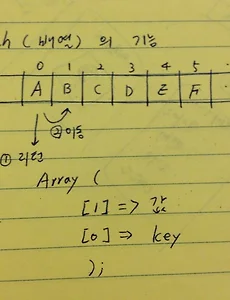 h (배열) 의 기능
0 1 2 3 4 5
A B C D E F
② 이동
① 리턴
Array (
[1] => 값
[0] => key
);